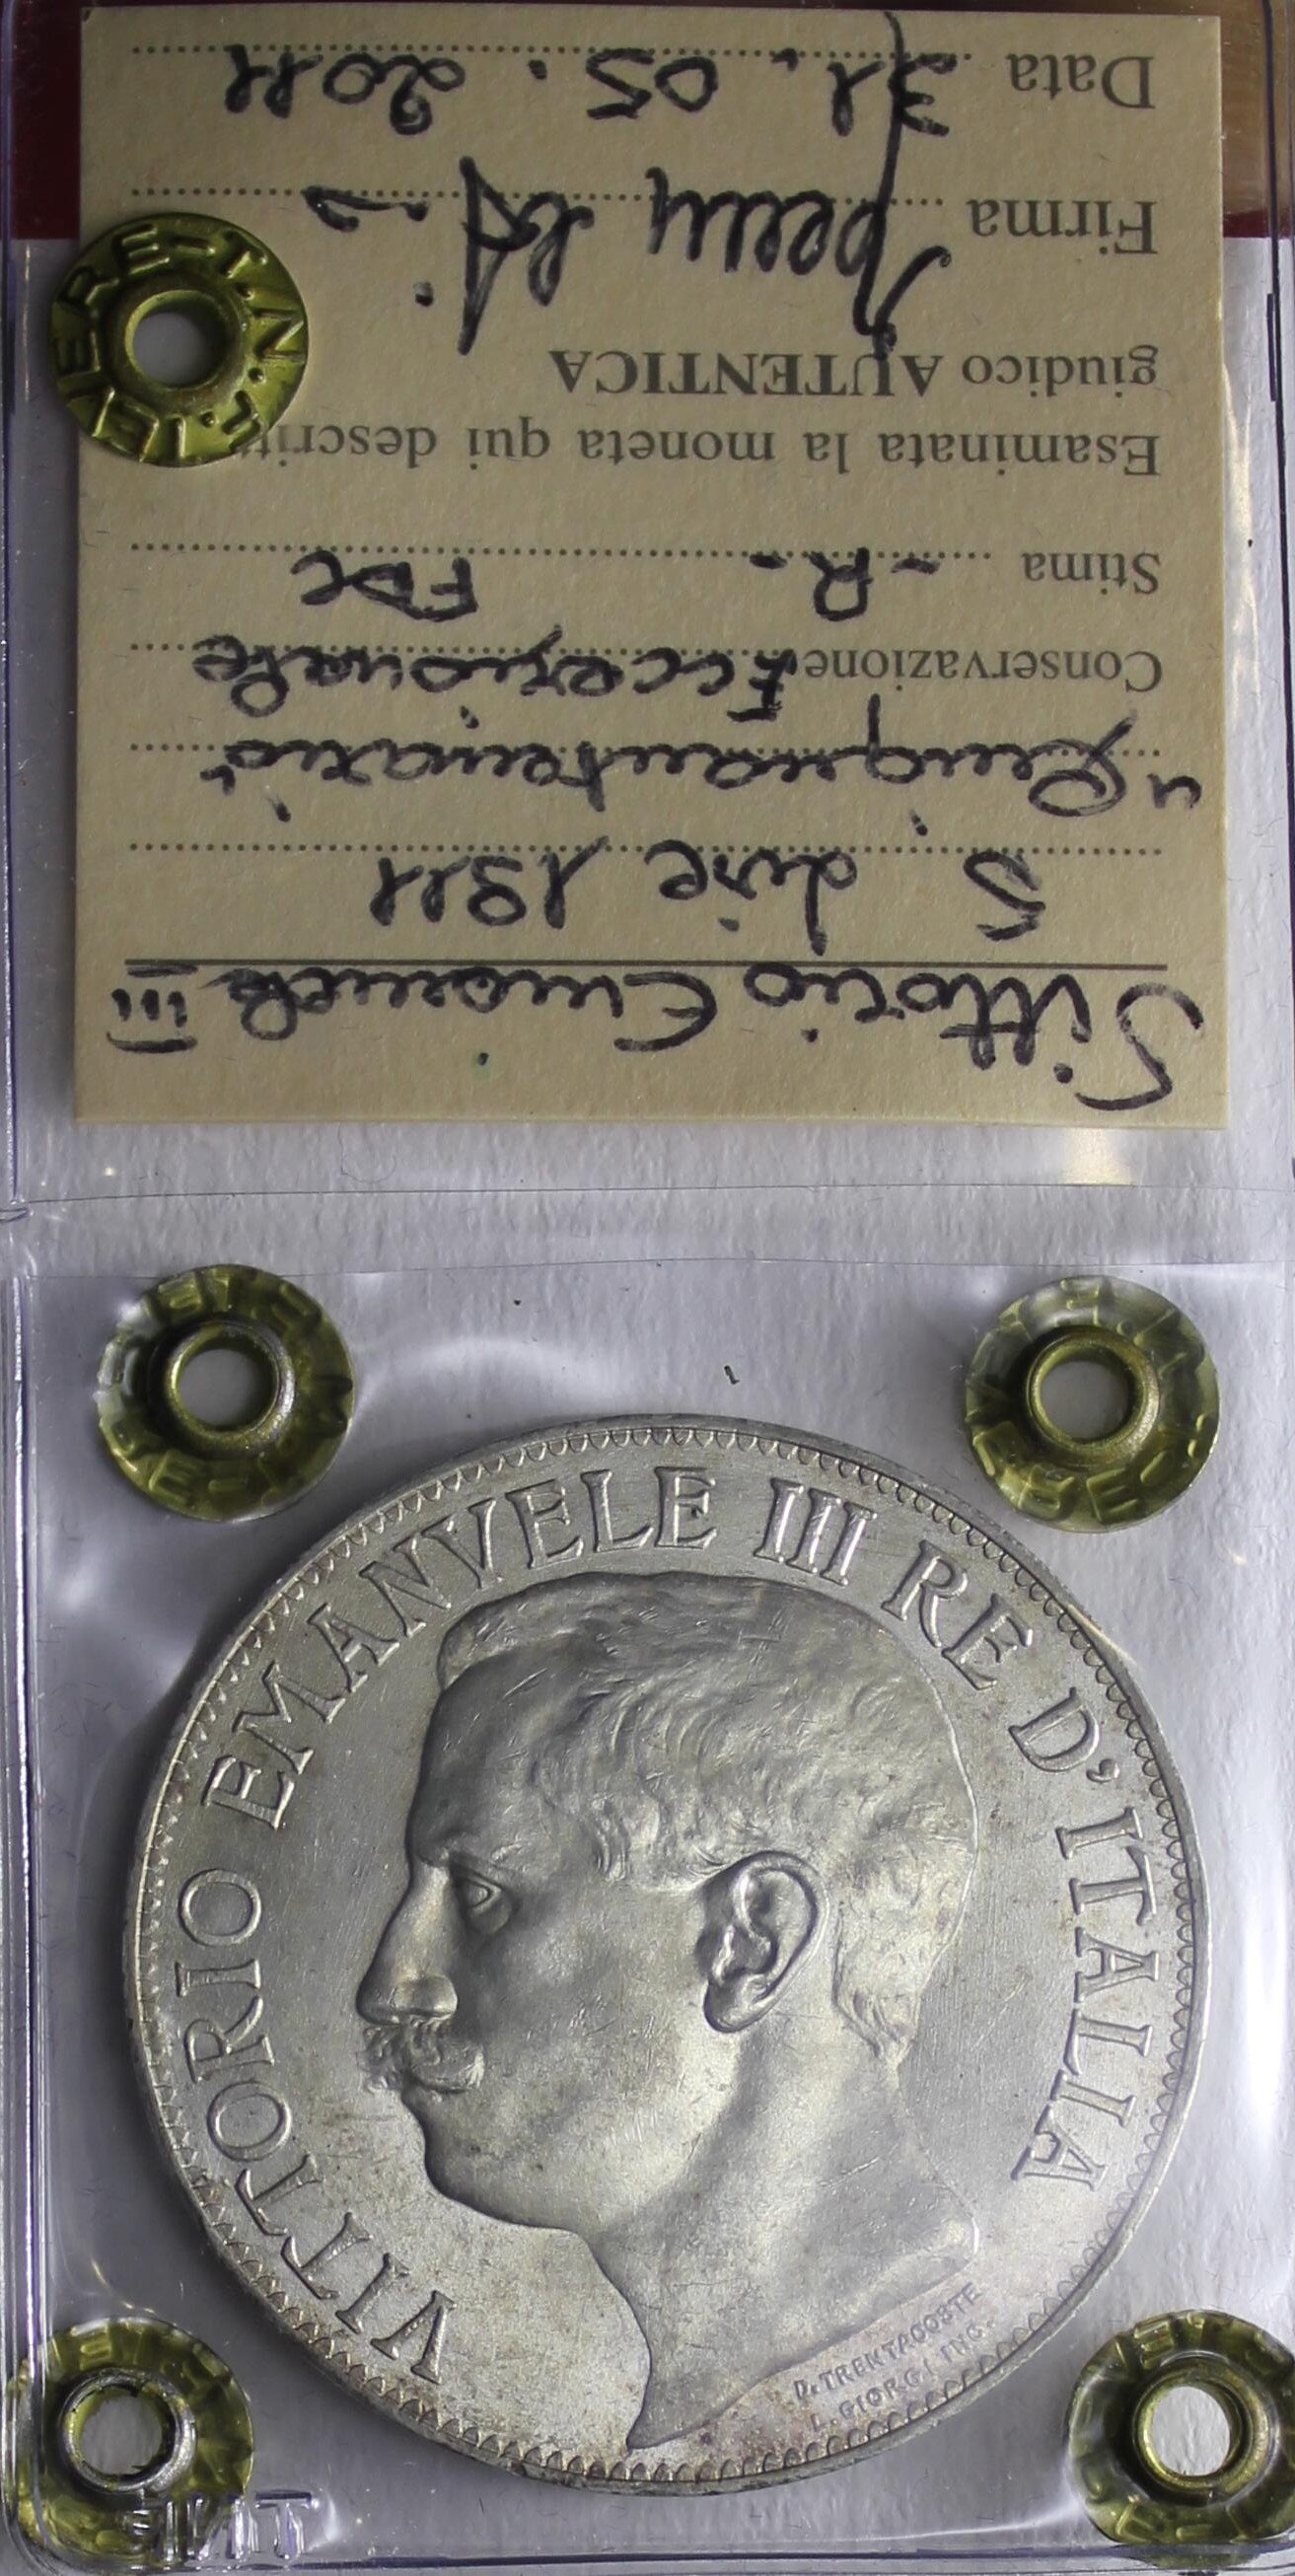 Vittorio Emanuele III
5 lire 1911
"Cinquantenario"
Conservazione Eccezionale
Stima - R. FDC
Esaminata la moneta qui descritt
giudico AUTENTICA
Firma
Data 31. 05. 2011
VITTORIO EMANVELE III RE D'ITALIA
D. TRENTACOSTE
L. GIORGI INC.